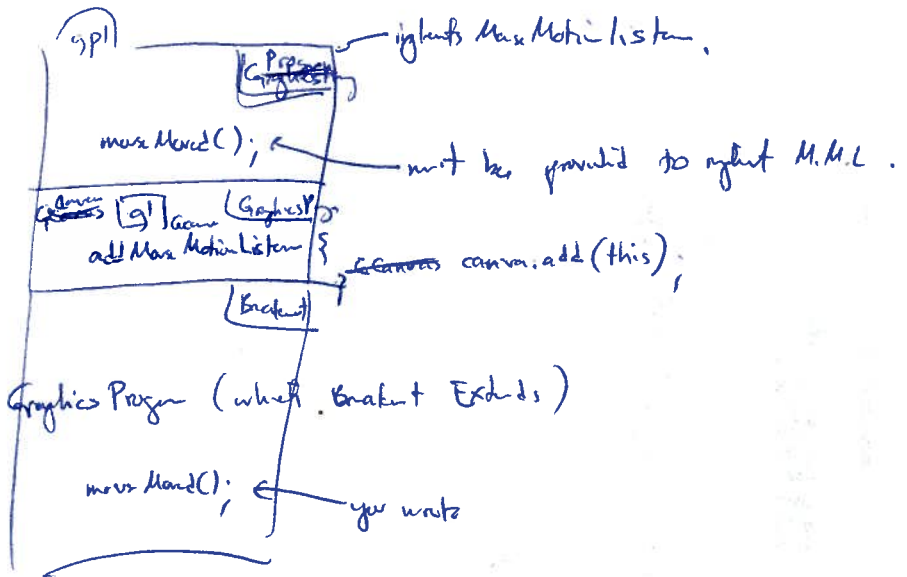 gp1
implements Mouse Motion Listener.
Program
mouseMoved();
must be provided to implement M.M.L.
canvas g1 GCanvas GraphicsP
add Mouse Motion Listener {
canvas.add(this);
}
Breakout
Graphics Program (which Breakout Extends)
mouse Moved();
you wrote